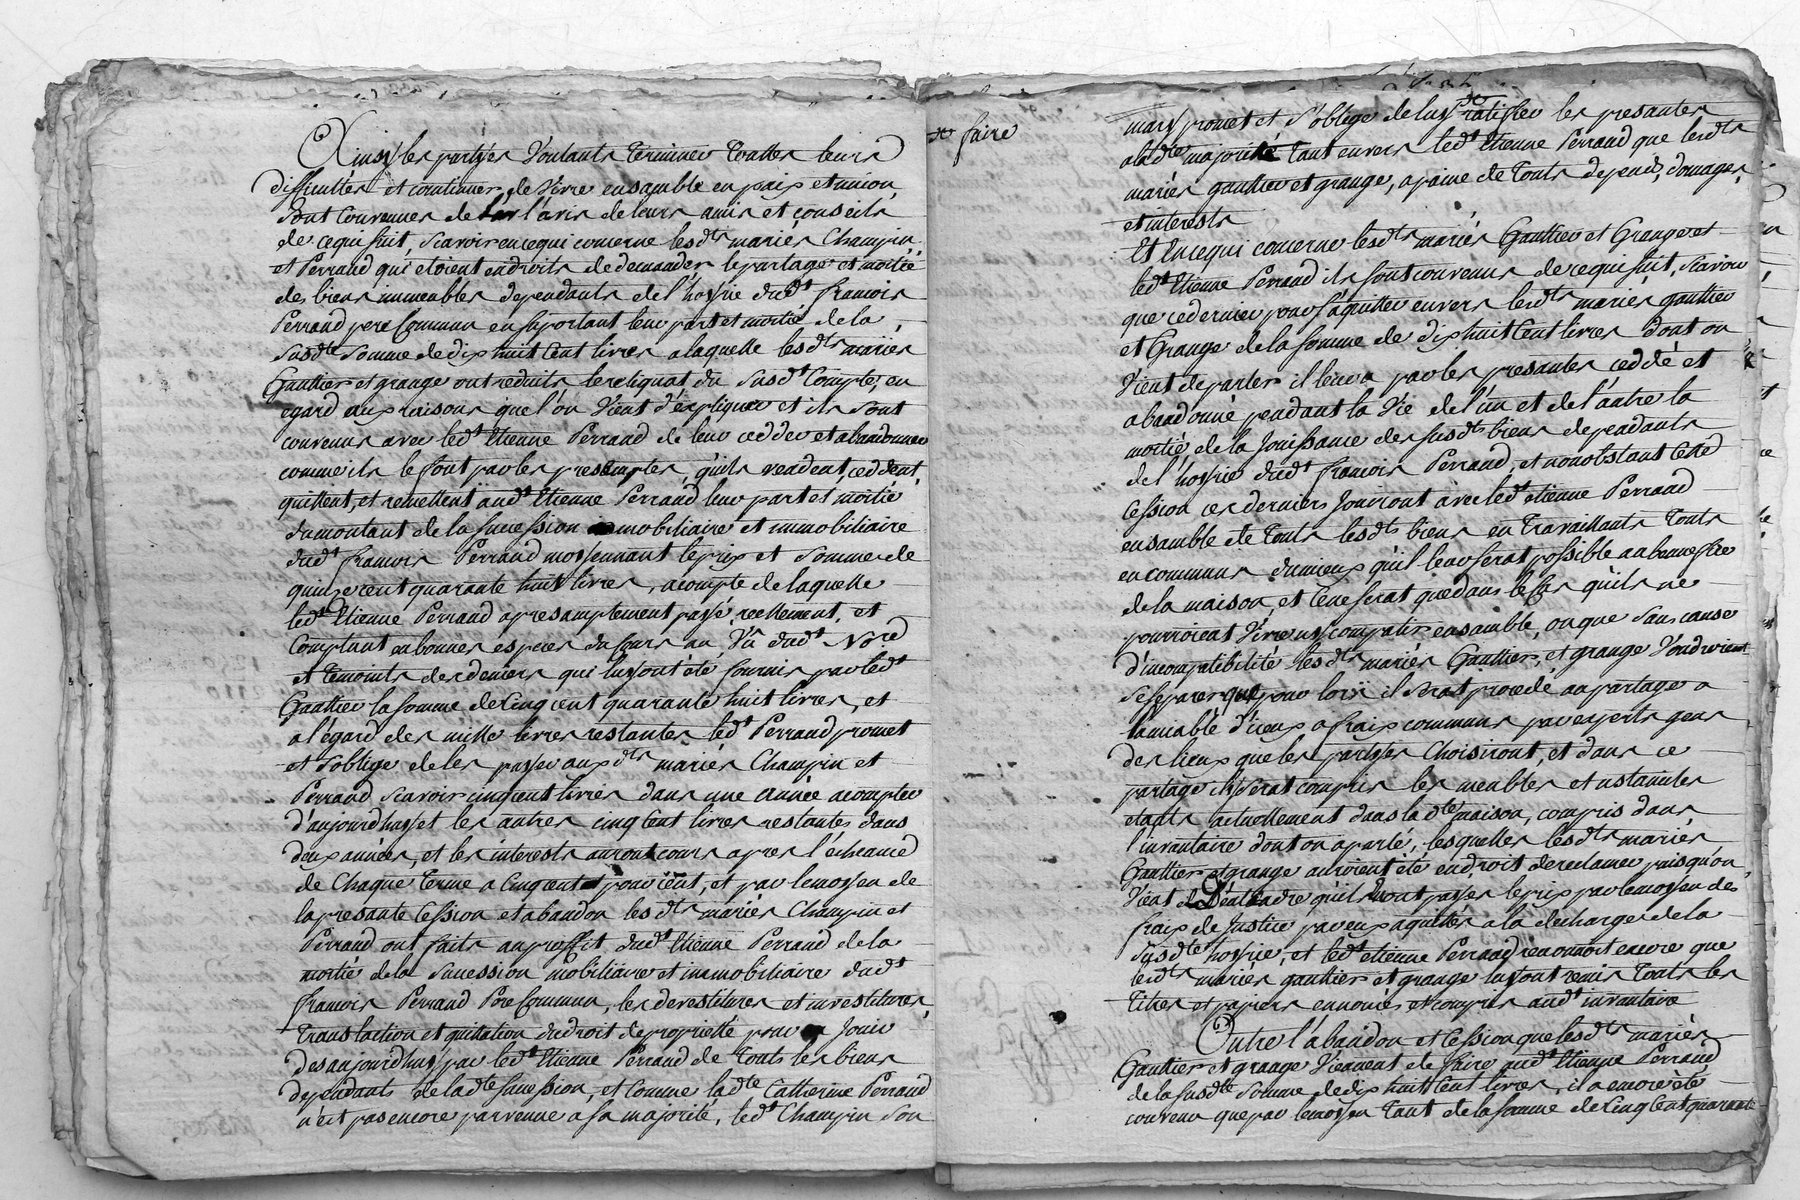 Ainsy les partÿes Voulants terminer toattes leurs
difficultés et continuer de Vivre ensamble en paix et union
Sont Convenues de l'avis de leurs amis et conseils
de ce qui suit, Scavoir en ce qui concerne lesd.ts mariés Champin
et Perraud qui étoient en droits de demander le partage et moitié
des biens immeubles dependants de l'hoÿrie dud.t françois
Perraud pere Commun en suportant leur part et moitié de la
susd.te Somme de dix huit Cent livres a laquelle lesd.ts mariés
Gauttier et grange ont reduits le reliquat du Susd.t Compte, eu
egard aux raisons que l'on Vient d'expliquer et ils sont
convenus avec led.t Etienne Perraud de leur cedder et abandonner
comme ils le font par les presantes, qu'ils vendent, ceddent,
quittent, et remettent aud.t Etienne Perraud leur part et moitié
du montant de la sucession mobiliaire et immobiliaire
dud.t françois Perraud moÿennant le prix et Somme de
quinze cent quarante huit livres, acompte de laquelle
led.t Etienne Perraud a presamptement paÿé, reellement, et
Comptant en bonnes especes du Cours au Vû dud.t No.re
et temoints des deniers qui luy ont été fournis par led.t
Gauttier la somme de Cinq cent quarante huit livres, et
a l'égard des mille livres restantes led.t Perraud promet
et s'oblige de les paÿer aux d.ts mariés Champin et
Perraud Scavoir cinq cent livres dans une année a compter
d'aujourdhuÿ et les autres cinq Cent livres restantes dans
deux années, et les interests auront cours apres l'écheance
de Chaque terme a Cinq cent pour cent, et par le moÿen de
la presante Cession et abandon les d.ts mariés Champin et
Perraud ont faits au proffit dud.t Etienne Perraud de la
moitié de la Sucession mobiliaire et immobiliaire dud.t
françois Perraud Pere Commun, les devestitures et investitures,
translaction et quitation du droit de proprietté pour Jouir
des aujourdhuÿ par led.t Etienne Perraud de touts les biens
dependants de lad.te sucession, et comme lad.te Catherine Perraud
n'est pas encore parvenue a sa majorité, led.t Champin Son
faire
mary promet et s'oblige de luÿ ratiffier les presantes
a lad.te majorité tant envers led.t Etienne Perraud que lesd.ts
mariés gauttier et grange, a paine de touts depend, domages,
et interests
Et En ce qui concerne lesd.ts mariés Gauttier et Grange et
led.t Etienne Perraud ils sont convenus de ce qui suit, Scavoir
que ce dernier pour s'aquitter envers lesd.ts mariés gauttier
et Grange de la somme de dix huit Cent livres dont on
Vient de parler il leur a par les presantes ceddé et
abandonné pendant la Vie de l'un et de l'autre la
moitié de la Jouissance des susd.ts biens dependants
de l'hoÿrie dud.t françois Perraud, et nonobstant Cette
Cession ces derniers Jouiront avec led.t etienne Perraud
ensamble de touts lesd.ts biens en travaillants touts
en communs du mieux qu'il leur serat possible au benneffice
de la maison, et Ce ne serat que dans le Cas qu'ils ne
pourroient Vivre nÿ compatir ensamble, ou que Sans cause
d'incompatibilité lesd.ts mariés Gauttier, et grange Voudroient
se separer que pour lors il serat procedé au partage a
l'amiable d'iceux a fraix communs par experts gens
des lieux que les partÿes Choisiront, et dans ce
partage il serat compris les meubles et ustanciles
etants actuellement dans lad.te maison, compris dans
l'invantaire dont on a parlé, lesquelles lesd.ts mariés
Gauttier et grange auroient été en droit de reclamer puisqu'on
Vient d'entendre qu'ils avont paÿés le prix par le moÿen des
fraix de Justice par eux aquittés a la decharge de la
susd.te hoÿrie, et led.t etienne Perraud reconnoit encore que
lesd.ts mariés gauttier et grange luÿ ont remis touts les
titres et papiers ennoncés et compris aud.t invantaire
Outre l'abandon et Cession que lesd.ts mariés
Gauttier et grange Viennent de faire aud.t Etienne Perraud
de la susd.te Somme de dix huit Cent livres, il a encore été
convenu que par le moÿen tant de la somme de Cinq Cent quarante